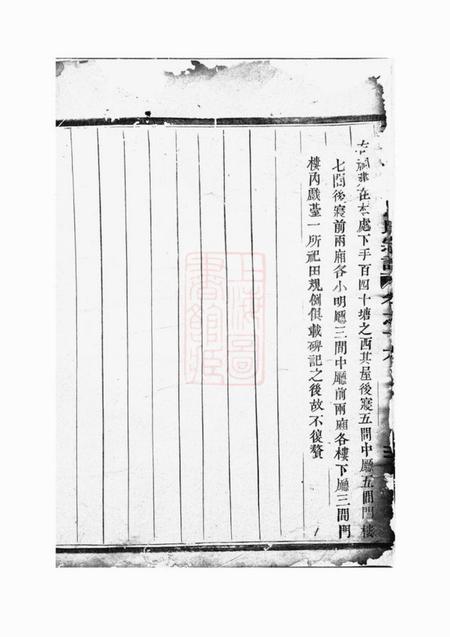 古祠基在本處下手百四十塘之西其屋後寢五間中廳五間門樓
七間後寢前兩廂各小明廳三間中廳前兩廂各樓下廳三間門
樓內戲臺一所祀田規例俱載碑記之後故不復贅
上海圖書館藏